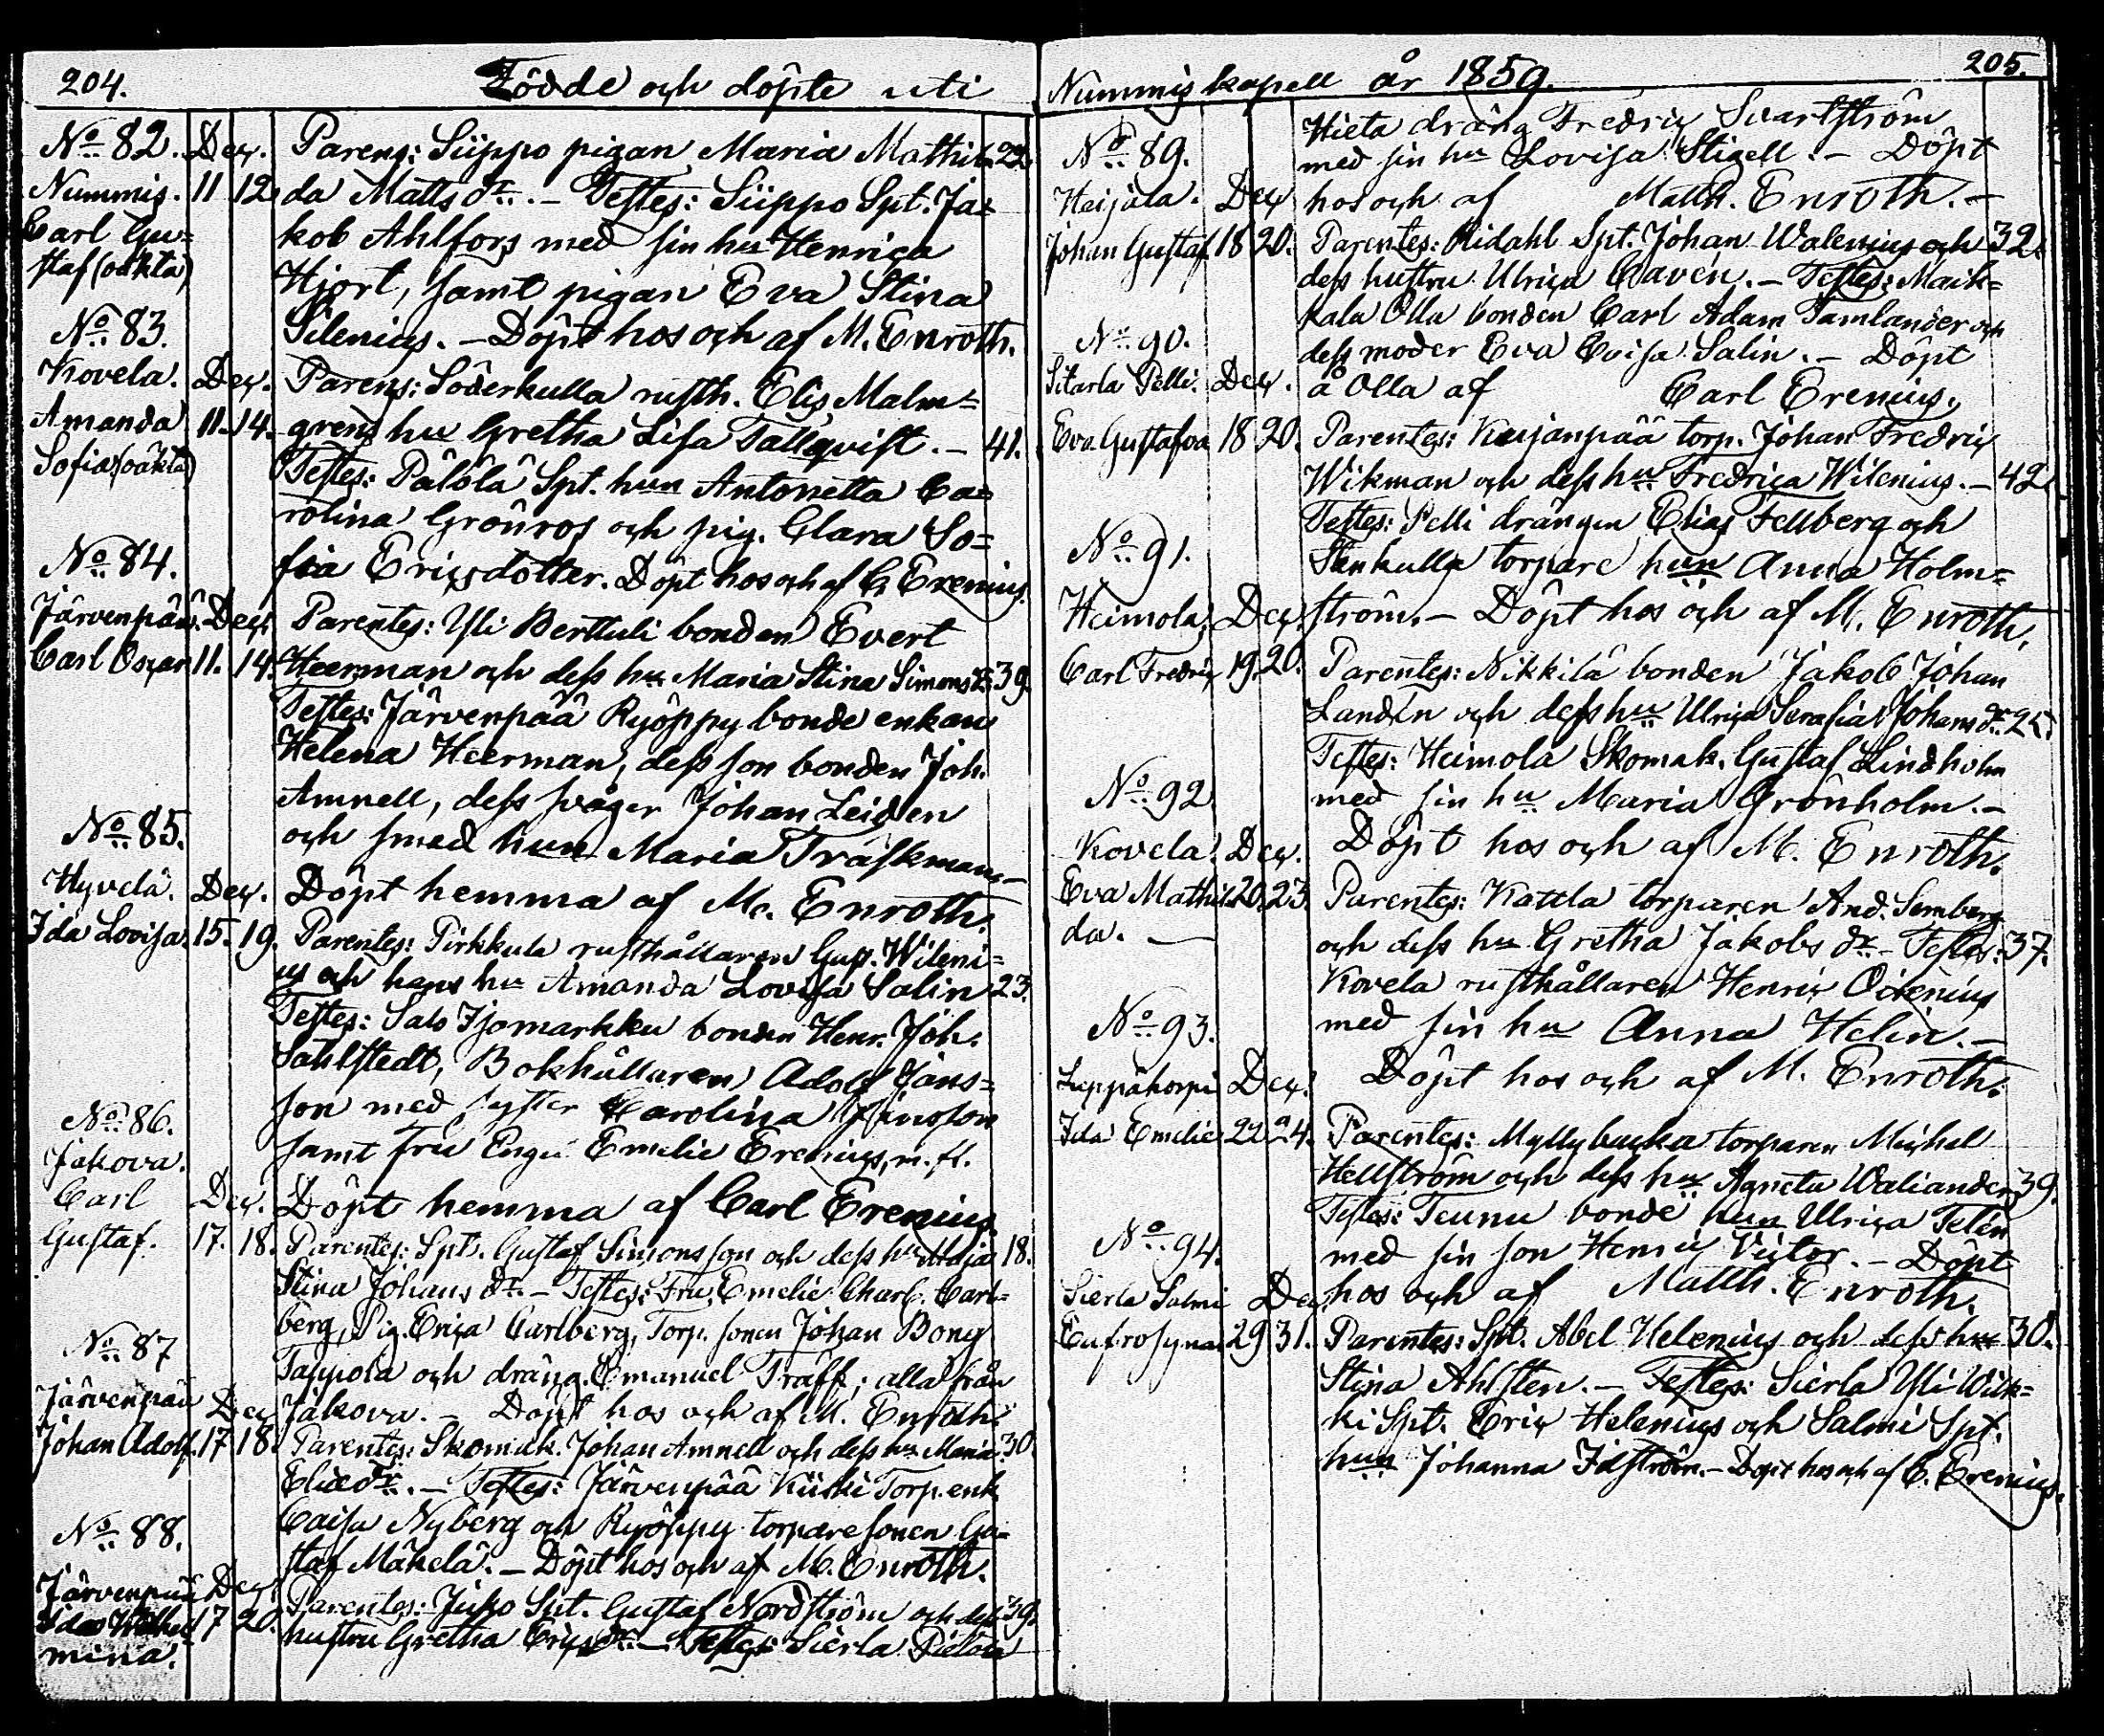 204.
Födde och döpte uti
No 82. Dec. Parens: Siippo pigan Maria Mathil= 22.
Nummis. 11 12 da Matts dr. – Testes: Siippo Spt. Ja=
Carl Gu= kob Ahlfors med sin hu Henrica
staf (oäkta) Hjort, samt pigan Eva Stina
No 83. Silenius. – Döpt hos och af M. Enroth.
Kovela. Dec. Parens: Söderkulla rusth. Elis Malm=
Amanda 11. 14. grens hu Gretha Lisa Tallqvist. – 41.
Sofia (oäkta) Testes: Pälölä Spt. hun Antonetta Ca=
rolina Grönros och pig. Clara So=
No 84. fia Ericsdotter. Döpt hos och af C. Erenius.
Järvenpää. Dec. Parentes: Yli Berttuli bonden Evert
Carl Oscar 11. 14. Heerman och dess hu Maria Stina Simons dr 39.
Testes: Järvenpää Ryöppy bonde enkan
Helena Heerman, dess son bonden Joh.
Amnell, dess svåger Johan Leiden
No 85. och smed hun Maria Träskman –
Hyvelä. Dec. Döpt hemma af M. Enroth.
Ida Lovisa. 15. 19. Parentes: Pirkkula rusthållaren Gust. Wileni=
us och hans hu Amanda Lovisa Salin 23.
Testes: Salo Isomarkku bonden Henr. Joh.
Sahlstedt, Bokhållaren Adolf Jans=
No 86. son med syster Carolina Jansson
Jakova. samt fru Emelie Erenius, m. fl.
Carl Dec. Döpt hemma af Carl Erenius
Gustaf. 17. 18. Parentes: Spt. Gustaf Simonsson och dess hu Maja 18.
Stina Johans dr. – Testes: Fru Emelie Charl. Carl=
berg, Pig. Erica Carlberg, Torp. sonen Johan Bong
No 87 Tappola och dräng. Emanuel Träff; alla från
Järvenpää Dec Jakova. – Döpt hos och af M. Enroth.
Johan Adolf. 17 18. Parentes: Skomak. Johan Amnell och dess hu Maria 30.
Elie dr. – Testes: Järvenpää Kiiski Torp. enk.
No 88. Caisa Nyberg och Ryöppy torparesonen Gu=
staf Mäkelä. – Döpt hos och af M. Enroth.
Järvenpää Dec. Parentes: Juko Spt. Gustaf Nordström och dess 39.
Ida Wilhel 17 20. hustru Gretha Erics dr. – Testes: Sierla
mina.
Nummis kapell år 1859.
205.
Hieta dräng Fredric Svartström
No 89. med sin hu Lovisa Stigell. – Döpt
Haijala. Dec hos och af Matth. Enroth. –
Johan Gustaf. 18 20. Parentes: Ridahl Spt. Johan Walenius och 32.
dess hustru Ulrica Cavén. – Testes: Maik=
No 90. kala Olla bonden Carl Adam Tamlander och
dess moder Eva Caisa Salin. – Döpt
Sitarla Pelli. Dec. å Olla af Carl Erenius.
Eva Gustafva 18 20. Parentes: Karjanpää torp. Johan Fredric
Wikman och dess hu Fredrica Wilenius. – 42.
Testes: Pelli drängen Elias Fellberg och
No 91. Stenkulla torpare hun Anna Holm=
Heimola. Dec. ström. – Döpt hos och af M. Enroth.
Carl Fredric 19. 20. Parentes: Nikkilä bonden Jakob Johan
Landén och dess hu Ulrica Serafia Johans dr. 25.
Testes: Heimola Skomak. Gustaf Lindholm
No 92. med sin hu Maria Grönholm. –
Kovela. Dec. Döpt hos och af M. Enroth.
Eva Mathil 20. 23. Parentes: Kattela torparen And. Semberg
da. – och dess hu Gretha Jakobs dr – Testes: 37.
Kovela rusthållaren Henric
No 93. med sin hu Anna Helin. –
Leppäkorpi Dec. Döpt hos och af M. Enroth.
Ida Emelie 22 24. Parentes: Myllybacka torparen Michel
Hellström och dess hu Agneta Waliander 39.
Testes: Teunu bonde hun Ulrica Telén
No 94. med sin son Henric Victor. – Döpt
Sierla Salmi Dec. hos och af Matth. Enroth.
Eufrosyna 29 31. Parentes: Spt. Abel Helenius och dess hu 30.
Stina Ahlsten. – Testes: Sierla Yli Wilk=
ki Spt. Eric Helenius och Salmi Spt.
hun Johanna Idström. – Döpt hos och af C. Erenius.